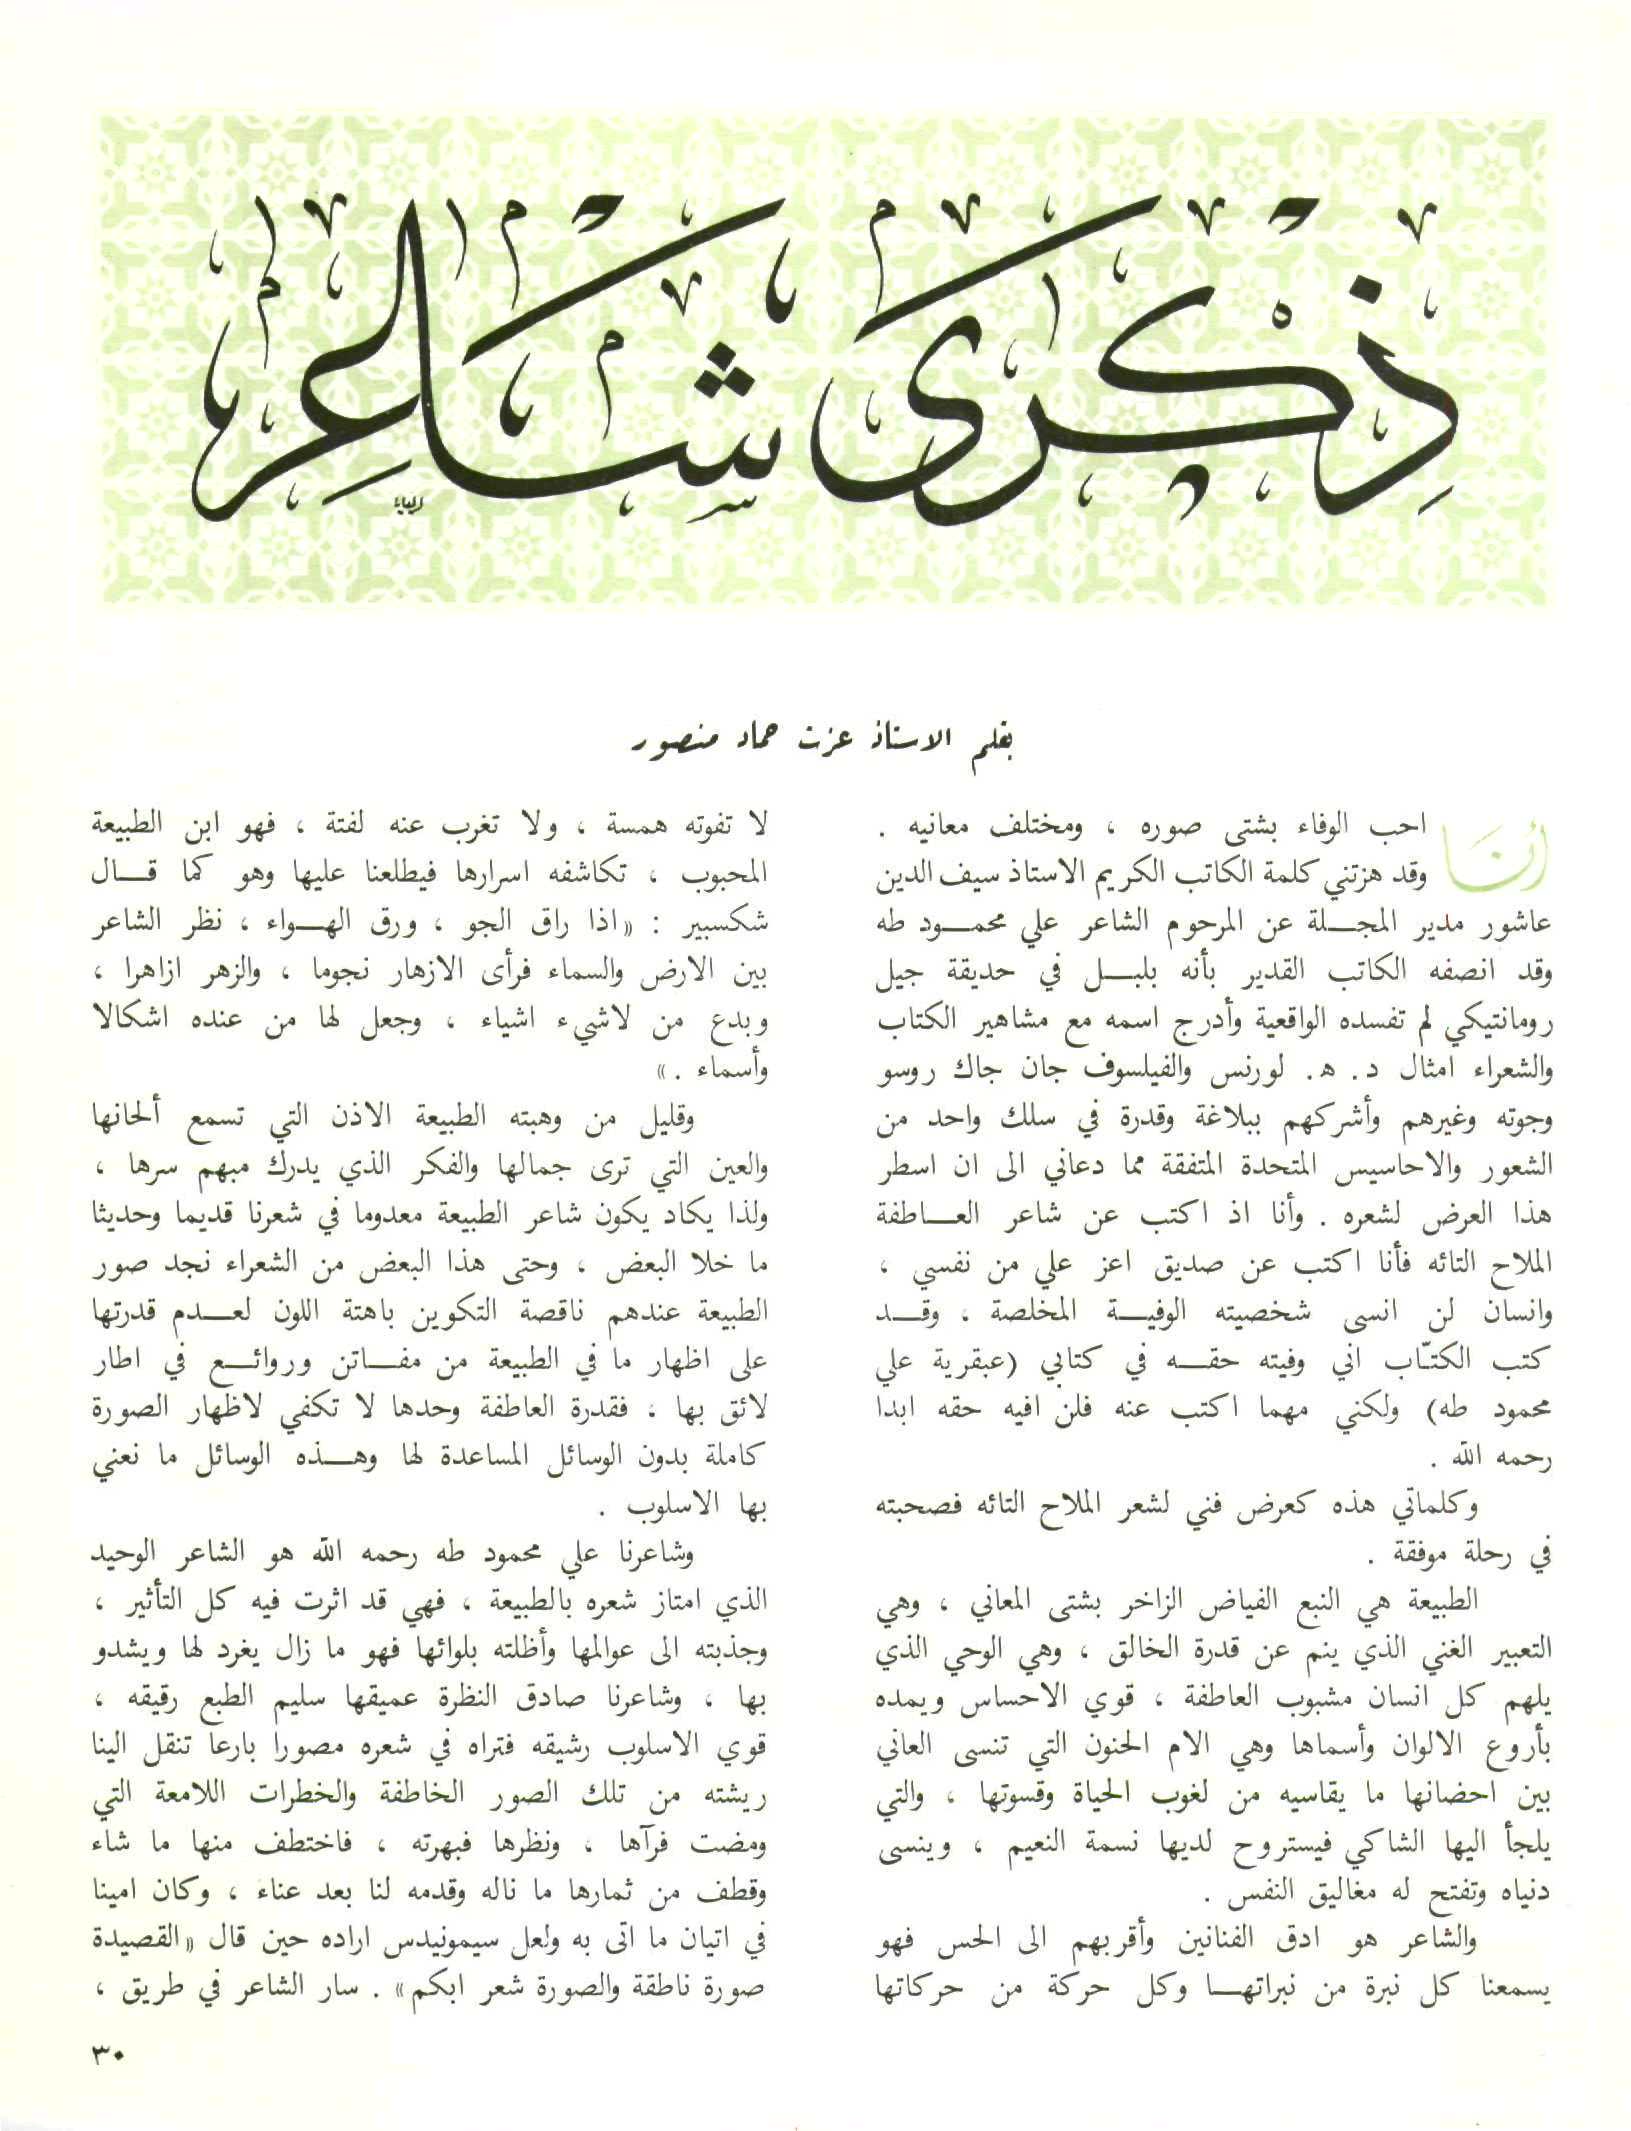 ذِكْرَى شَاعِر
بقلم الاستاذ عزت حماد منصور
أنَا احب الوفاء بشتى صوره ، ومختلف معانيه .
وقد هزتني كلمة الكاتب الكريم الاستاذ سيف الدين
عاشور مدير المجلة عن المرحوم الشاعر علي محمود طه
وقد انصفه الكاتب القدير بأنه بلبل في حديقة جيل
رومانتيكي لم تفسده الواقعية وأدرج اسمه مع مشاهير الكتاب
والشعراء امثال د. ه. لورنس والفيلسوف جان جاك روسو
وجوته وغيرهم وأشركهم ببلاغة وقدرة في سلك واحد من
الشعور والاحاسيس المتحدة المتفقة مما دعاني الى ان اسطر
هذا العرض لشعره . وأنا اذ اكتب عن شاعر العاطفة
الملاح التائه فأنا اكتب عن صديق اعز علي من نفسي ،
وانسان لن انسى شخصيته الوفية المخلصة ، وقد
كتب الكتّاب اني وفيته حقه في كتابي (عبقرية علي
محمود طه) ولكني مهما اكتب عنه فلن افيه حقه ابدا
رحمه الله .
وكلماتي هذه كعرض فني لشعر الملاح التائه فصحبته
في رحلة موفقة .
الطبيعة هي النبع الفياض الزاخر بشتى المعاني ، وهي
التعبير الغني الذي ينم عن قدرة الخالق ، وهي الوحي الذي
يلهم كل انسان مشبوب العاطفة ، قوي الاحساس ويمده
بأروع الالوان وأسماها وهي الام الحنون التي تنسى العاني
بين احضانها ما يقاسيه من لغوب الحياة وقسوتها ، والتي
يلجأ اليها الشاكي فيستروح لديها نسمة النعيم ، وينسى
دنياه وتفتح له مغاليق النفس .
والشاعر هو ادق الفنانين وأقربهم الى الحس فهو
يسمعنا كل نبرة من نبراتها وكل حركة من حركاتها
لا تفوته همسة ، ولا تغرب عنه لفتة ، فهو ابن الطبيعة
المحبوب ، تكاشفه اسرارها فيطلعنا عليها وهو كما قال
شكسبير : «اذا راق الجو ، ورق الهواء ، نظر الشاعر
بين الارض والسماء فرأى الازهار نجوما ، والزهر ازاهرا ،
وبدع من لاشيء اشياء ، وجعل لها من عنده اشكالا
وأسماء .»
وقليل من وهبته الطبيعة الاذن التي تسمع ألحانها
والعين التي ترى جمالها والفكر الذي يدرك مبهم سرها ،
ولذا يكاد يكون شاعر الطبيعة معدوما في شعرنا قديما وحديثا
ما خلا البعض ، وحتى هذا البعض من الشعراء نجد صور
الطبيعة عندهم ناقصة التكوين باهتة اللون لعدم قدرتها
على اظهار ما في الطبيعة من مفاتن وروائع في اطار
لائق بها ، فقدرة العاطفة وحدها لا تكفي لاظهار الصورة
كاملة بدون الوسائل المساعدة لها وهذه الوسائل ما نعني
بها الاسلوب .
وشاعرنا علي محمود طه رحمه الله هو الشاعر الوحيد
الذي امتاز شعره بالطبيعة ، فهي قد اثرت فيه كل التأثير ،
وجذبته الى عوالمها وأظلته بلوائها فهو ما زال يغرد لها ويشدو
بها ، وشاعرنا صادق النظرة عميقها سليم الطبع رقيقه ،
قوي الاسلوب رشيقه فتراه في شعره مصورا بارعا تنقل الينا
ريشته من تلك الصور الخاطفة والخطرات اللامعة التي
ومضت فرآها ، ونظرها فبهرته ، فاختطف منها ما شاء
وقطف من ثمارها ما ناله وقدمه لنا بعد عناء ، وكان امينا
في اتيان ما اتى به ولعل سيمونيدس اراده حين قال «القصيدة
صورة ناطقة والصورة شعر ابكم» . سار الشاعر في طريق ،
٣٠